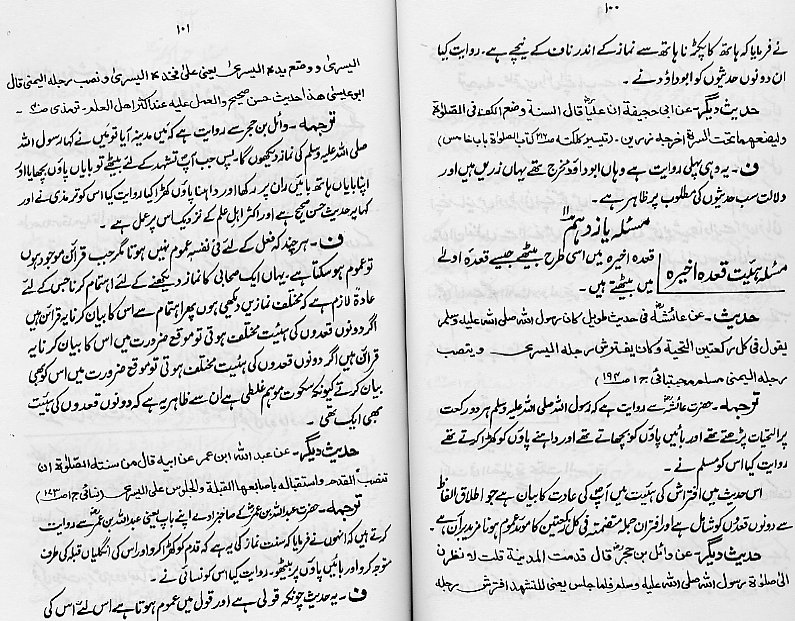 ۱۰۰
نے فرمایا کہ ہاتھ کا پکڑنا ہاتھ سے نماز کے اندر ناف کے نیچے ہے۔ روایت کیا
ان دونوں حدیثوں کو ابو داؤد نے۔
حدیث دیگر۔ عن ابی جحیفة ان علیاً قال السنة وضع الکف فی الصلوٰة
ولیضعهما تحت السرة اخرجه رزین۔ (تیسیر کلکتہ ص کتاب الصلوٰة باب خامس)
ف۔ یہ وہی پہلی روایت ہے وہاں ابو داؤد مخرج تھے یہاں رزین ہیں اور
دلالت سب حدیثوں کی مطلوب پر ظاہر ہے۔
مسئلہ یازدہم
مسئلہ ہیئت قعدہ اخیرہ
قعدہ اخیرہ میں اسی طرح بیٹھے جیسے قعدہ اولے
میں بیٹھتے ہیں۔
حدیث۔ عن عائشة فی حدیث طویل کان رسول الله صلی الله علیه وسلم
یقول فی کل رکعتین التحیة وکان یفترش رجله الیسری وینصب
رجله الیمنی مسلم مجتبائی ج ۱ ص ۱۹۴)
ترجمہ۔ حضرت عائشہؓ سے روایت ہے کہ رسول اللہ صلی اللہ علیہ وسلم ہر دو رکعت
پر التحیات پڑھتے تھے اور بائیں پاؤں کو بچھاتے تھے اور داہنے پاؤں کو کھڑا کرتے تھے
روایت کیا اس کو مسلم نے۔
اس حدیث میں افتراش کی ہیئت میں آپؐ کی عادت کا بیان ہے جو اطلاق الفاظ
سے دونوں قعدوں کو شامل ہے اور اقتران جملہ متضمنہ فی کل رکعتین کا موید عموم ہونا مزید برآں ہے۔
حدیث دیگر۔ عن وائل بن حجر قال قدمت المدینة قلت لانظرن
الی صلوٰة رسول الله صلی الله علیه وسلم فلما جلس یعنی للتشهد افترش رجله
۱۰۱
الیسری ووضع یده الیسری یعنی علی فخذه الیسری ونصب رجله الیمنی قال
ابو عیسی هذا حدیث حسن صحیح والعمل علیه عند اکثر اهل العلم۔ ترمذی ص
ترجمہ۔ وائل بن حجر سے روایت ہے کہ میں مدینہ آیا تو میں نے کہا رسول اللہ
صلی اللہ علیہ وسلم کی نماز دیکھوں گا۔ پس جب آپؐ تشہد کے لئے بیٹھے تو بایاں پاؤں بچھایا اور
اپنا بایاں ہاتھ بائیں ران پر رکھا اور داہنا پاؤں کھڑا کیا روایت کیا اس کو ترمذی نے اور
کہا یہ حدیث حسن صحیح ہے اور اکثر اہل علم کے نزدیک اس پر عمل ہے۔
ف۔ ہر چند کہ فعل کے لئے فی نفسہ عموم نہیں ہوتا مگر جب قرائن موجود ہوں
تو عموم ہو سکتا ہے۔ یہاں ایک صحابی کا نماز دیکھنے کے لئے اہتمام کرنا جس کے لئے
عادۃً لازم ہے کہ مختلف نمازیں دیکھی ہوں پھر اہتمام سے اس کا بیان کرنا یہ قرائن ہیں
اگر دونوں قعدوں کی ہیئت مختلف ہوتی تو موقع ضرورت میں اس کا بیان کرنا یہ
قرائن ہیں اگر دونوں قعدوں کی ہیئت مختلف ہوتی تو موقع ضرورت میں اس کو بھی
بیان کرتے کیونکہ سکوت موہم غلطی ہے ان سے ظاہر یہ ہے کہ دونوں قعدوں کی ہیئت
بھی ایک تھی۔
حدیث دیگر۔ عن عبد الله ابن عمر عن ابیه قال من سنة الصلوٰة ان
تنصب القدم واستقباله باصابعها القبلة والجلوس علی الیسری (نسائی ج ۱ ص ۱۷۳)
ترجمہ۔ حضرت عبد اللہ بن عمرؓ کے صاحبزادے اپنے باپ یعنی عبد اللہ بن عمرؓ سے روایت
کرتے ہیں کہ انہوں نے فرمایا کہ سنت نماز کی یہ ہے کہ قدم کو کھڑا کرو اور اس کی انگلیاں قبلہ کی طرف
متوجہ کرو اور بائیں پاؤں پر بیٹھو۔ روایت کیا اس کو نسائی نے۔
ف۔ یہ حدیث چونکہ قولی ہے اور قول میں عموم ہوتا ہے اس لئے اس کی